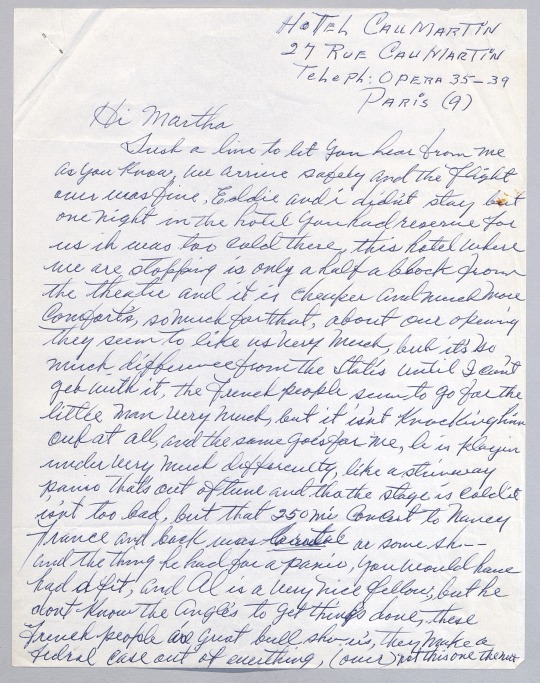 HOTEL CAUMARTIN
27 RUE CAUMARTIN
Teleph: OPERA 35-39
PARIS (9)
Hi Martha
Such a line to let you hear from me
as you know, we arrive safely and the flight
over was fine. Eddie and i didn't stay but
one night in the hotel you had reserve for
us it was too cold there, this hotel where
we are stopping is only a half a block from
the theatre and it is cheaper and much more
Comforts, so much for that, about our opening
they seem to like us very much, but it's so
much difference from the States until I can't
get with it, the French people seem to go for the
little man very much, but it isn't knocking him
out at all, and the same goes for me, he is playin
under very much difficulty, like a stinway
pano that's out of tune and tho the stage is cold it
isn't too bad, but that 250 mi Concert to Nancy
France and back was or some sh--
and the thing he had for a pano, you would have
had a fit, and Al is a very nice fellow, but he
dont know the angles to get things done, these
French people are great bull sh-is, they make a
fedral case out of everthing, (over) not this one the next